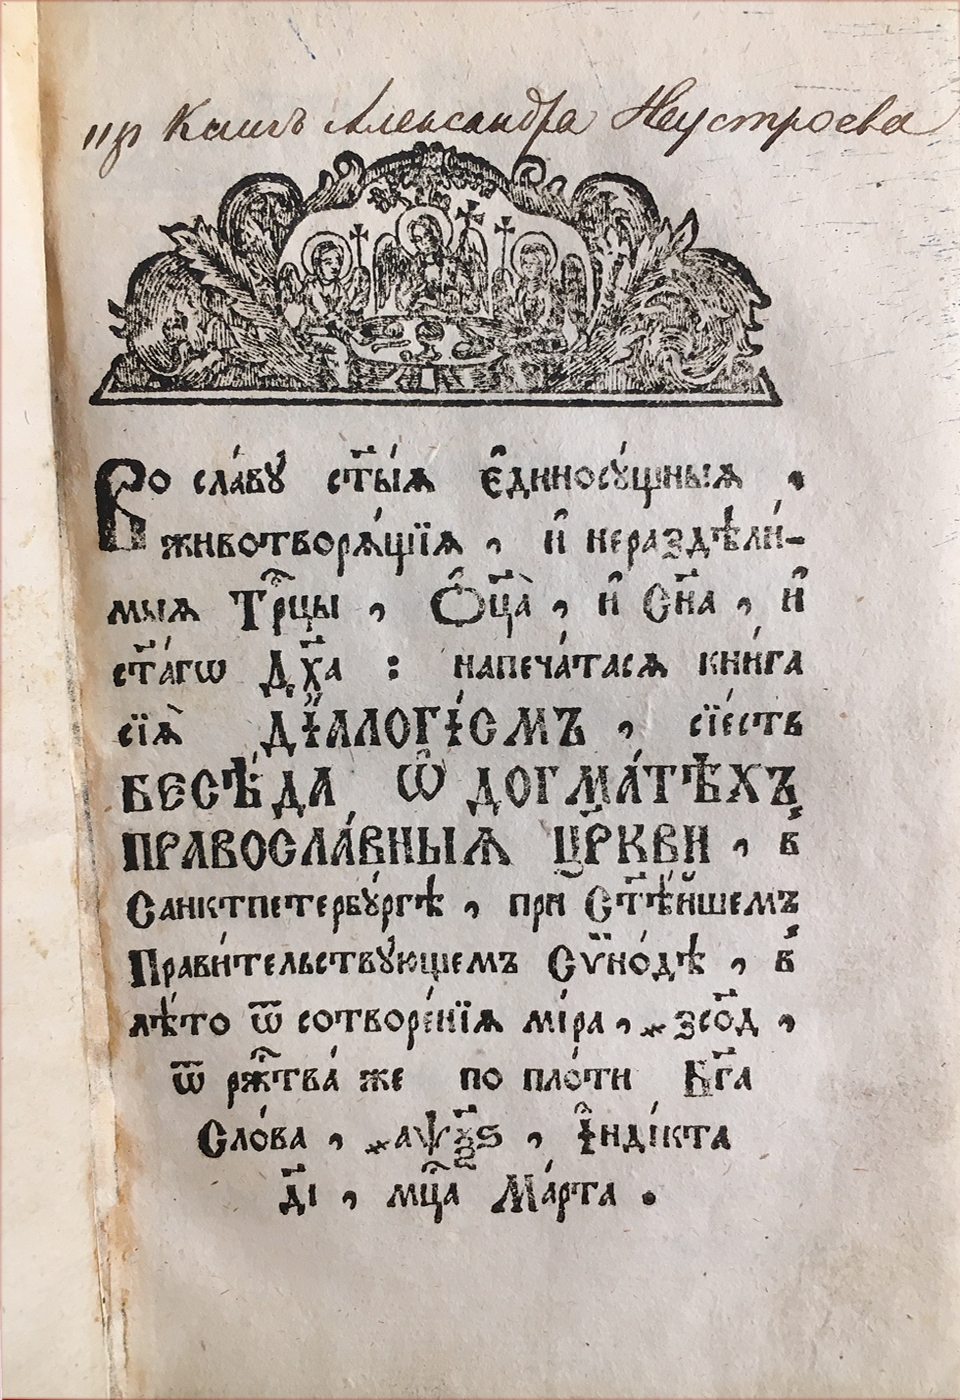 из Книгъ Александра Неустроева
Во сла́вꙋ ст҃ы́ѧ є҆диносꙋ́щныѧ ,
животворѧ́щїѧ , и҆ нераздѣли́-
мыѧ Трⷪ҇цы , Ѻ҆ц҃а̀ , и҆ Сн҃а , и҆
ст҃а́гѡ Дх҃а : напеча́тасѧ кни́га
сїѧ̀ ДЇАЛОГІ́СМЪ , сїе́сть
БЕСѢ́ДА Ѡ҆ ДОГМА́ТѢХЪ
ПРАВОСЛА́ВНЫѦ ЦР҃КВИ , в̾
Санктпетербꙋ́ргѣ , при Ст҃ѣ́йшемъ
Прави́тельствꙋющемъ Сѵно́дѣ , в̾
лѣ́то ѿ сотворе́нїѧ мі́ра , ҂зсо҃д ,
ѿ рж҇тва́ же по пло́ти Бг҃а
Сло́ва , ҂аѱѯ҃ѕ , І҆нді́кта
д҃і , мц҇а Ма́рта .